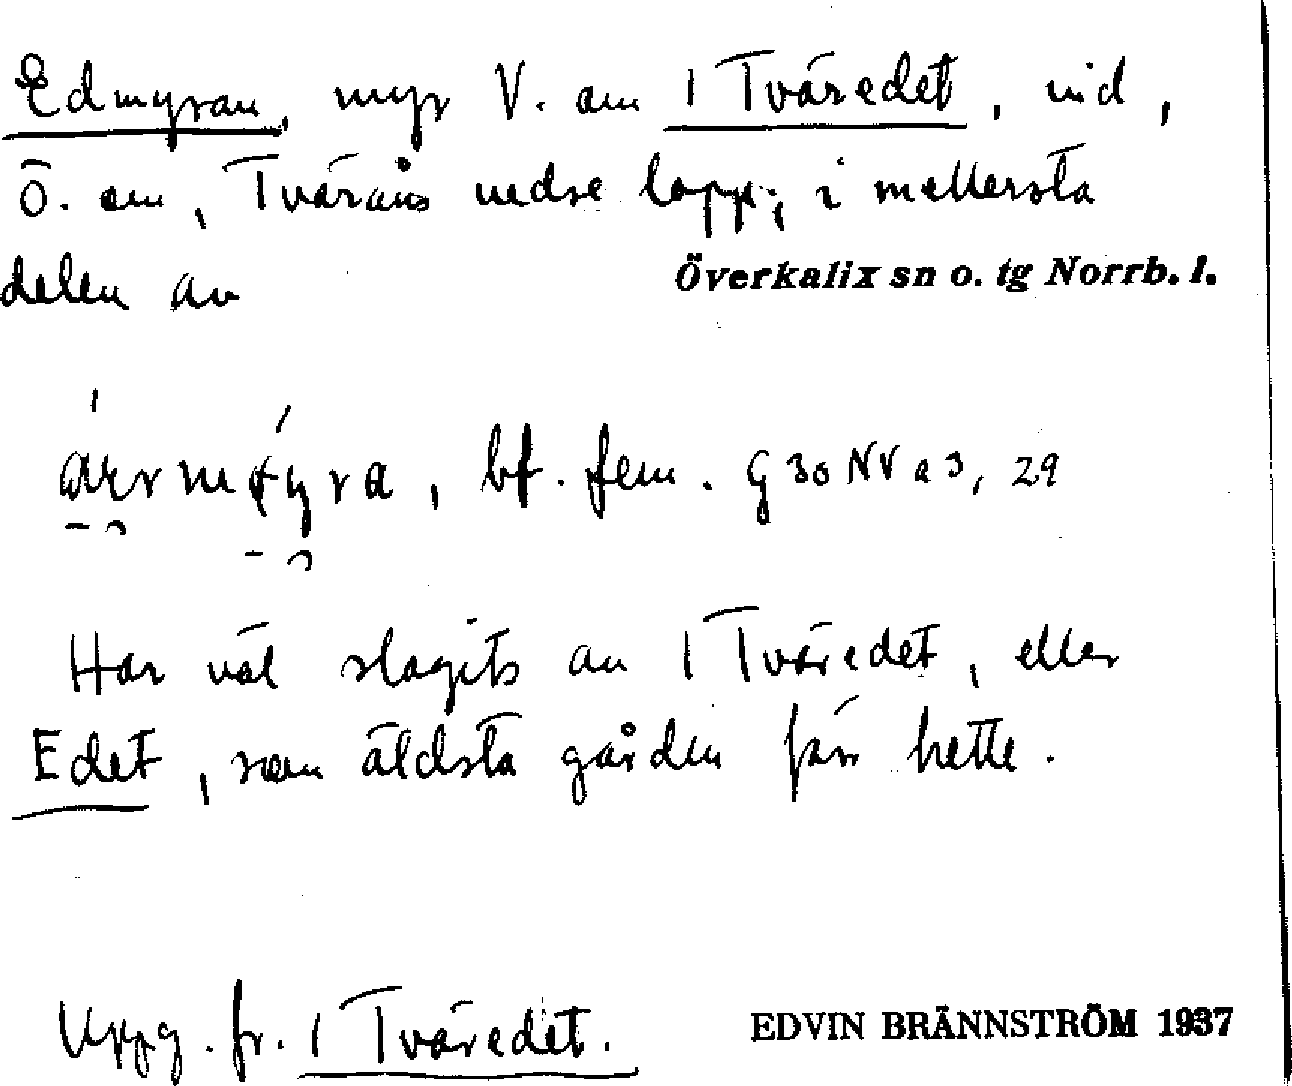 Edmyran, myr V. om 1 Tväredet, vid,
Ö. om, Tväråns nedre lopp; i mellersta
delen av Överkalix sn o. tg Norrb. l.
bf. fem. G 30 NV a 3, 29
Har väl slagits av 1 Tväredet, eller
Edet, som äldsta gården förr hette.
Uppg. fr. 1 Tväredet. EDVIN BRÄNNSTRÖM 1937